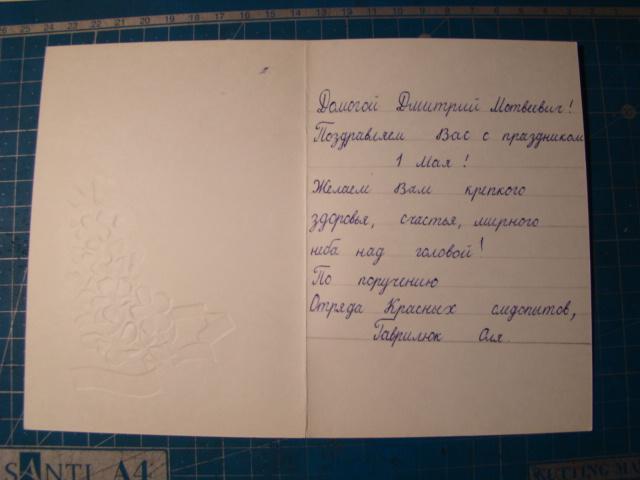 26 25 24 23 22 21 20 19 18 17 16 15 14 13 12 11 10 9 8 7 6 5 4
Домогой Дмитрий Матвеевич!
Поздравляем Вас с праздником
1 Мая!
Желаем Вам крепкого
здоровья, счастья, мирного
неба над головой!
По поручению
Отряда Красных следопытов,
Гаврилюк Оля.
SANTI A4
CUTTING MA